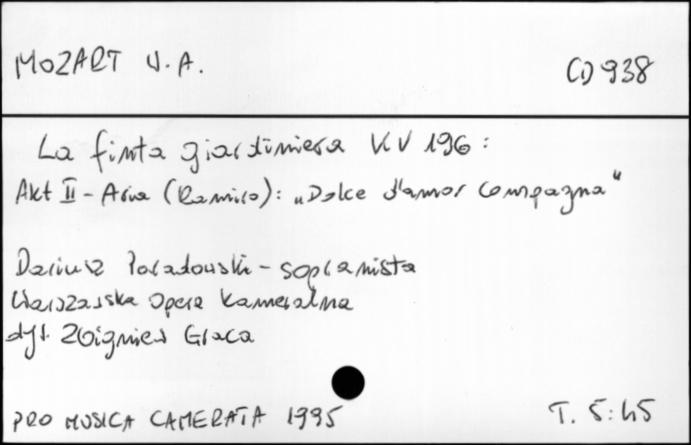 MOZART W.A. CD 938
La finta giardiniera KV 196:
Akt II - Aria (Ramiro): „Dolce d'amor compagna"
Dariusz Paradowski - sopranista
Warszawska Opera Kameralna
dyr. Zbigniew Graca
PRO MUSICA CAMERATA 1995 T. 5:45